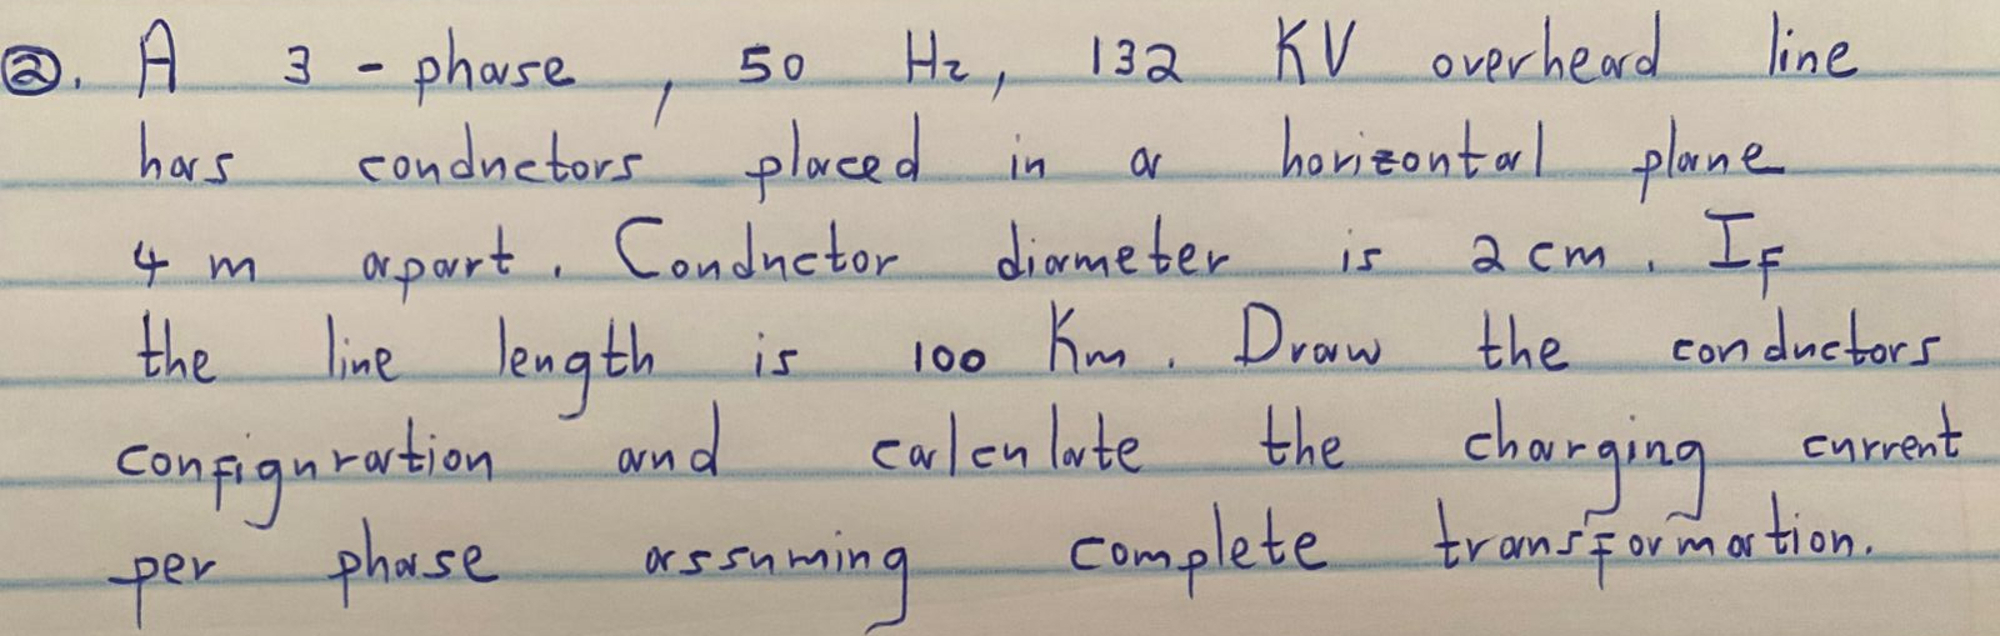 ②. A 3 - phase, 50 Hz, 132 KV overheard line
has conductors placed in a horizontal plane
4 m apart. Conductor diameter is 2 cm. IF
the line length is 100 Km. Draw the conductors
configuration and calculate the charging current
per phase assuming complete transformation.